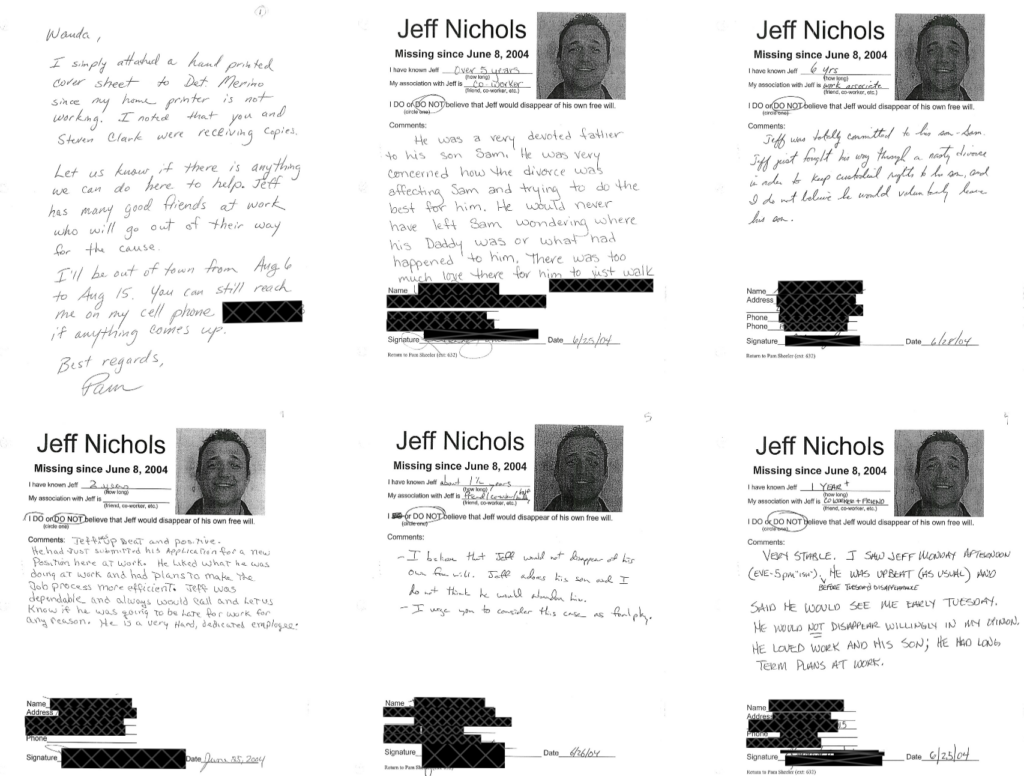 1
Wanda,
I simply attached a hand printed
cover sheet to Det. Merino
since my home printer is not
working. I noted that you and
Steven Clark were receiving copies.
Let us know if there is anything
we can do here to help. Jeff
has many good friends at work
who will go out of their way
for the cause.
I'll be out of town from Aug 6
to Aug 15. You can still reach
me on my cell phone
if anything comes up.
Best regards,
Pam
Jeff Nichols
Missing since June 8, 2004
I have known Jeff Over 5 years
(how long)
My association with Jeff is co-worker
(friend, co-worker, etc.)
I DO or DO NOT believe that Jeff would disappear of his own free will.
(circle one)
Comments:
He was a very devoted father
to his son Sam. He was very
concerned how the divorce was
affecting Sam and trying to do the
best for him. He would never
have left Sam wondering where
his Daddy was or what had
happened to him. There was too
much love there for him to just walk
Name
Signature Date 6/25/04
Return to Pam Shesler (ext 632)
Jeff Nichols
Missing since June 8, 2004
I have known Jeff 6 yrs
(how long)
My association with Jeff is work associate
(friend, co-worker, etc.)
I DO or DO NOT believe that Jeff would disappear of his own free will.
(circle one)
Comments:
Jeff was totally committed to his son - Sam.
Jeff just fought his way through a nasty divorce
in order to keep custodial rights to his son, and
I do not believe he would voluntarily leave
his son.
Name
Address
Phone
Phone
Signature Date 6/28/04
Return to Pam Shesler (ext 632)
Jeff Nichols
Missing since June 8, 2004
I have known Jeff 2 years
(how long)
My association with Jeff is
(friend, co-worker, etc.)
I DO or DO NOT believe that Jeff would disappear of his own free will.
(circle one)
Comments: Jeff was up Beat and positive.
He had Just submitted his Application for a new
Position here at work. He liked what he was
doing at work and had plans to make the
Job process more efficient. Jeff was
dependable and always would call and Let us
Know if he was going to be Late for work for
any reason. He is a very Hard, dedicated employee.
Name
Address
Phone
Signature Date June 25, 2004
5
Jeff Nichols
Missing since June 8, 2004
I have known Jeff about 1½ years
(how long)
My association with Jeff is friend/co-worker/
(friend, co-worker, etc.)
I or DO NOT believe that Jeff would disappear of his own free will.
(circle one)
Comments:
- I believe that Jeff would not disappear of his
own free will. Jeff adores his son and I
do not think he would abandon him.
- I urge you to consider this case as foul play.
Name
Signature Date 6/26/04
Return to Pam Shesler (ext 632)
Jeff Nichols
Missing since June 8, 2004
I have known Jeff 1 YEAR +
(how long)
My association with Jeff is CO WORKER + FRIEND
(friend, co-worker, etc.)
I DO or DO NOT believe that Jeff would disappear of his own free will.
(circle one)
Comments:
VERY STABLE. I SAW JEFF MONDAY AFTERNOON
(EVE - 5pm "ish"), HE WAS UPBEAT (AS USUAL) AND
BEFORE TUESDAY'S DISAPPEARANCE
SAID HE WOULD SEE ME EARLY TUESDAY.
HE WOULD NOT DISAPPEAR WILLINGLY IN MY OPINION.
HE LOVED WORK AND HIS SON; HE HAD LONG
TERM PLANS AT WORK.
Name
Address
15
Phone
Signature Date 6/25/04
Return to Pam Shesler (ext 632)